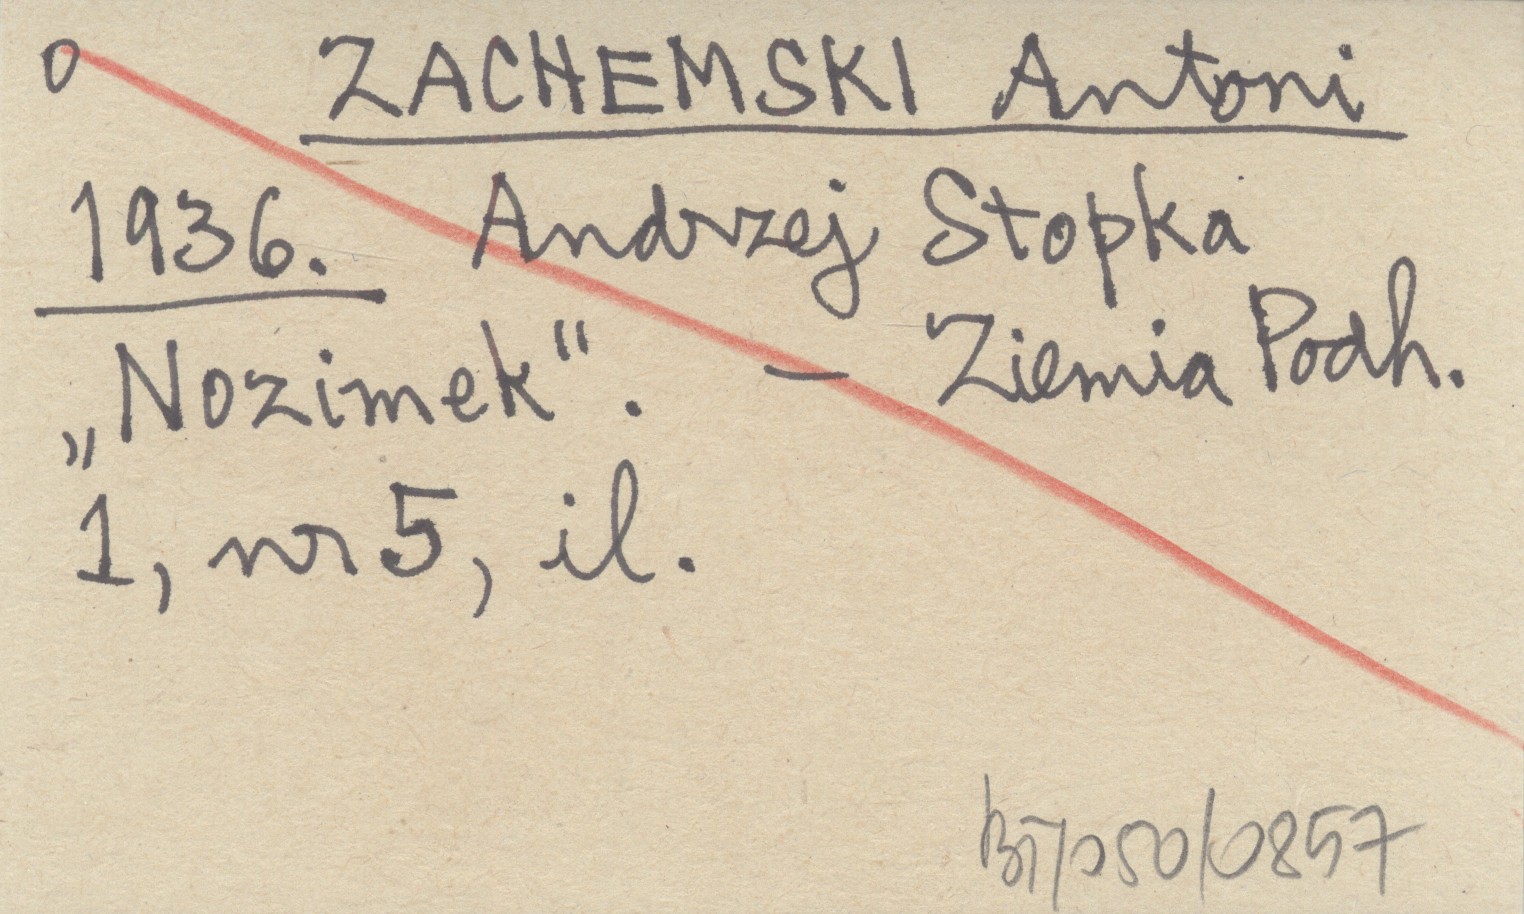 0 ZACHEMSKI Antoni
1936. Andrzej Stopka
„Nozimek“. — Ziemia Podh.
1, nr 5, il.
BT/050/0857